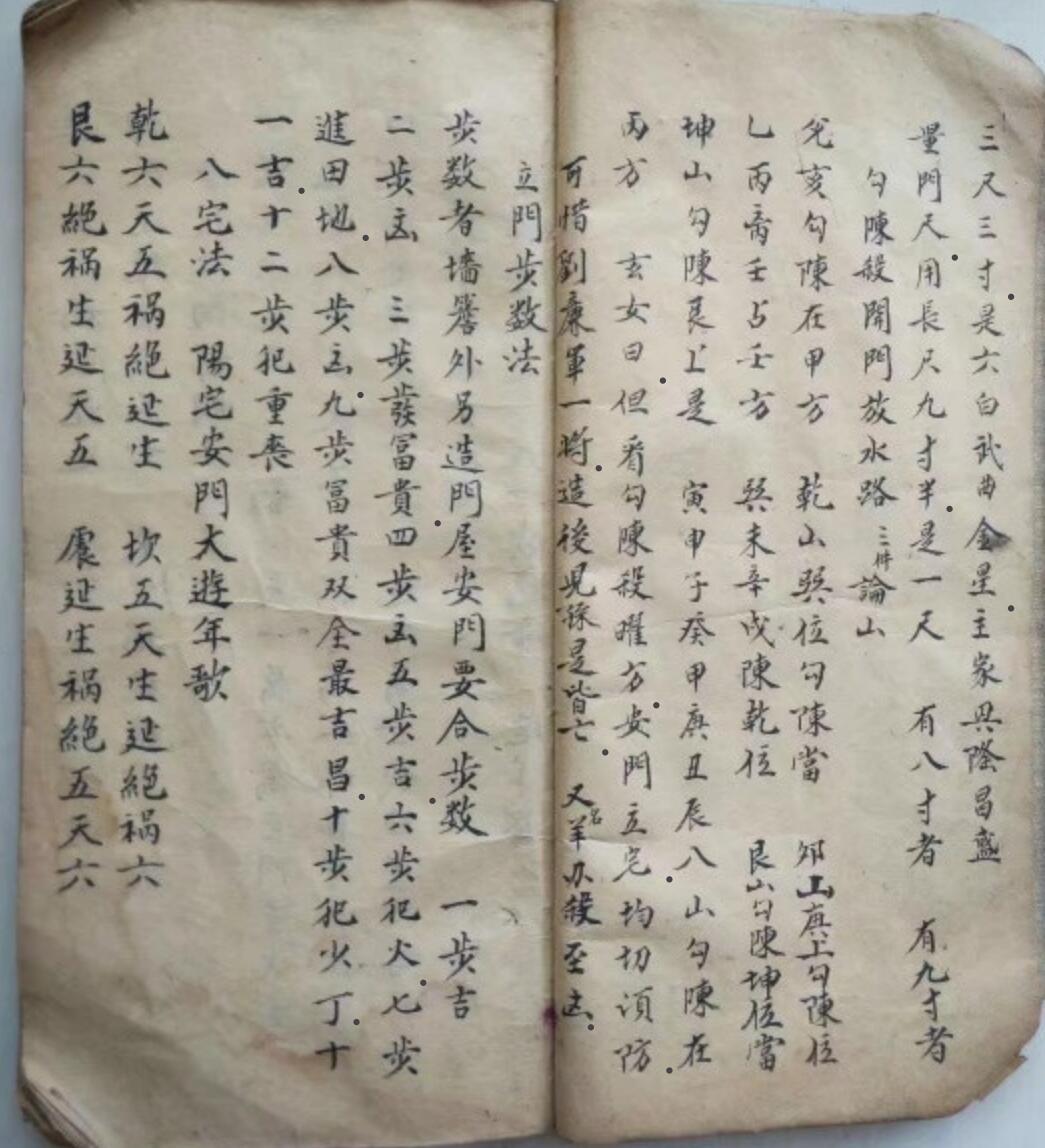 三尺三寸是六白武曲金星主家興隆昌盛
量門尺用長尺九寸半是一尺 有八寸者 有九寸者
勾陳殺開門放水路三件論山
兌亥勾陳在甲方 乾山巽位勾陳當 卯山庚上勾陳位
乙丙裔壬占壬方 巽未辛戌陳乾位 艮山勾陳坤位當
坤山勾陳艮上是 寅申子癸甲庚丑辰八山勾陳在
丙方 玄女曰但看勾陳殺曜方安門立宅均切須防
可惜劉廉軍一將造後見孫是皆亡 又名羊刃殺至凶
立門步数法
步数者墻簷外另造門屋安門要合步数 一步吉
二步凶 三步發冨貴四步凶五步吉六步犯火七步
進田地八步凶九步冨貴双全最吉昌十步犯少丁十
一吉十二步犯重喪
八宅法 陽宅安門大遊年歌
乾六天五祸絕延生 坎五天生延絕祸六
艮六絕祸生延天五 震延生祸絕五天六